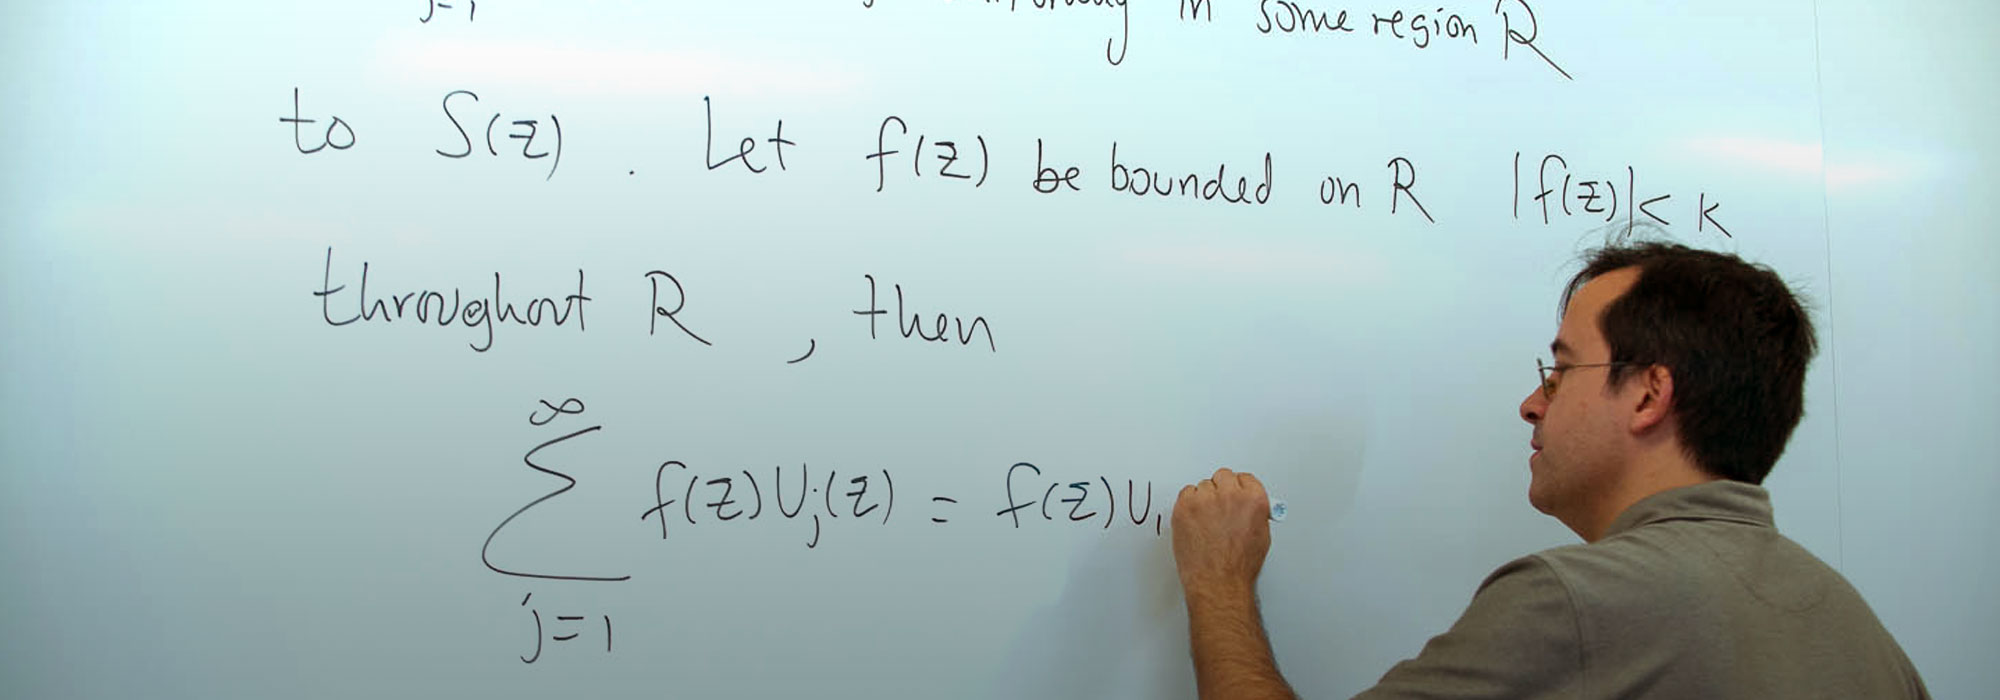 j=1 in some region R
to S(z). Let f(z) be bounded on R |f(z)| < K
throughout R, then
∞
∑ f(z)Uj(z) = f(z)U1
j=1